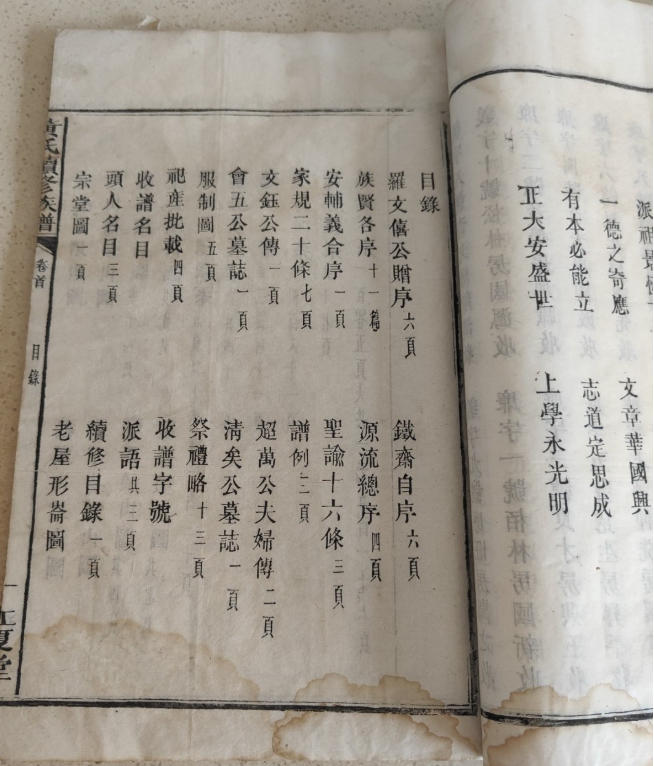 派
一德之奇應 文章華國興
有本必能立 志道定思成
正大安盛世 上學永光明
目錄
羅文僖公贈序六頁 鐵齋自序六頁
族賢各序十一篇 源流總序四頁
安輔義合序一頁 聖諭十六條三頁
家規二十條七頁 譜例二頁
文鈺公傳一頁 超萬公夫婦傳二頁
會五公墓誌一頁 清矣公墓誌一頁
服制圖五頁 祭禮略十三頁
祀產批載四頁 收譜字號
收譜名目 派語共三頁
頭人名目三頁 續修目錄一頁
宗堂圖一頁 老屋形崙圖
黃氏續修族譜 卷首 目錄 一 江夏堂